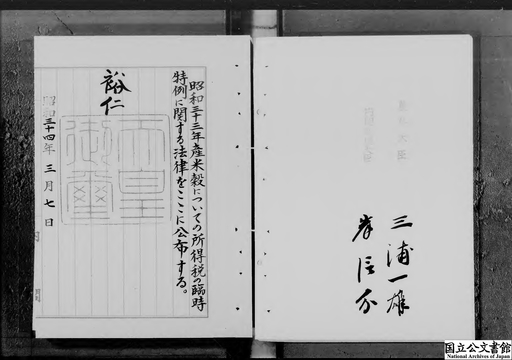 昭和三十三年産米穀についての所得税の臨時
特例に関する法律をここに公布する。
裕仁
天皇
御璽
昭和三十四年三月七日
三浦一雄
岸信介
国立公文書館
National Archives of Japan